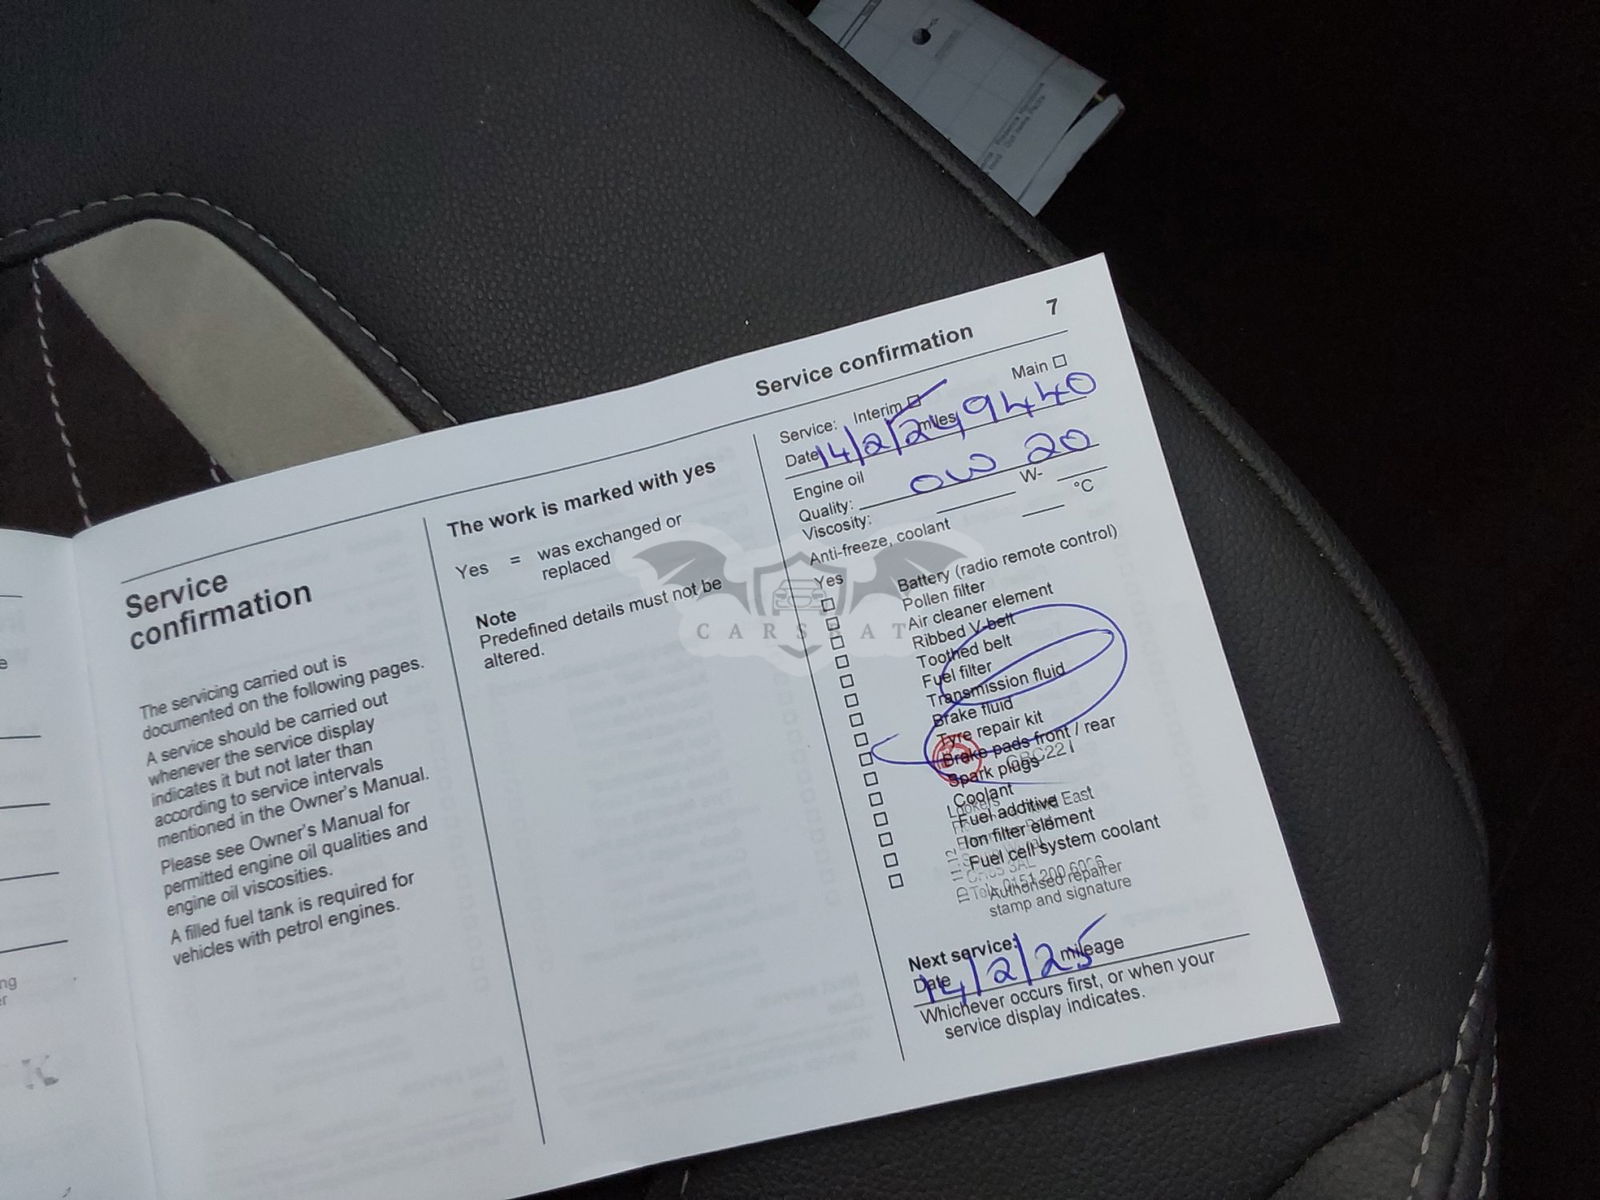 7
Service confirmation
Service
confirmation
The servicing carried out is
documented on the following pages.
A service should be carried out
whenever the service display
indicates it but not later than
according to service intervals
mentioned in the Owner's Manual.
Please see Owner's Manual for
permitted engine oil qualities and
engine oil viscosities.
A filled fuel tank is required for
vehicles with petrol engines.
The work is marked with yes
Yes = was exchanged or
replaced
Note
Predefined details must not be
altered.
Service: Interim Main
Date 14/2/24 miles 9440
Engine oil
Quality: 0W 20
Viscosity: W-
Anti-freeze, coolant °C
Yes
Battery (radio remote control)
Pollen filter
Air cleaner element
Ribbed V-belt
Toothed belt
Fuel filter
Transmission fluid
Brake fluid
Tyre repair kit
Brake pads front / rear
Spark plugs
Coolant
Fuel additive
Ion filter element
Fuel cell system coolant
Authorised repairer
stamp and signature
East
Tel: 0151 200 6006
Next service:
Date 14/2/25 mileage
Whichever occurs first, or when your
service display indicates.
CARSBAT